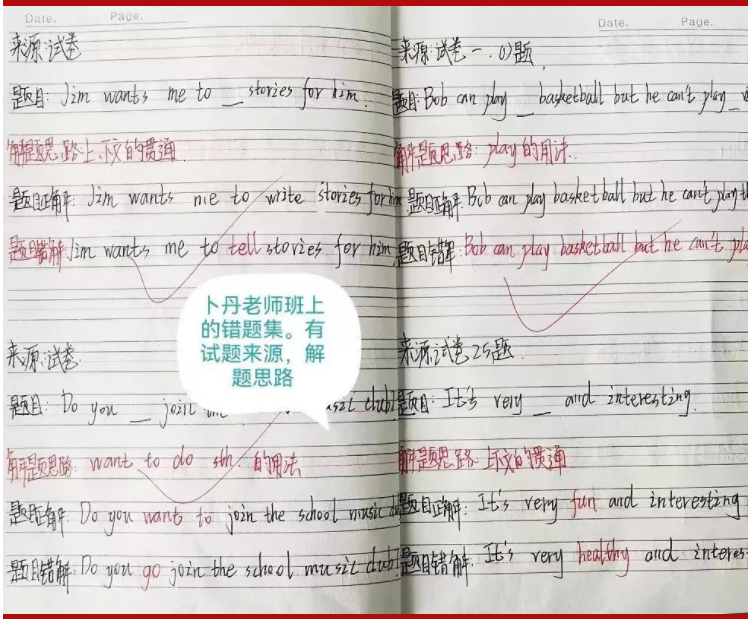 Date. Page.
来源:试卷
题目: Jim wants me to _ stories for him.
解题思路:上下文的贯通
题目正解: Jim wants me to write stories for him
题目错解 Jim wants me to tell stories for him
来源:试卷.
题目: Do you _ join music club?
解题思路: want to do sth. 的用法
题目正解 Do you want to join the school music
题目错解 Do you go join the school music club?
卜丹老师班上
的错题集。有
试题来源，解
题思路
Date. Page.
来源:试卷一.(1)题.
题目: Bob can play _ basketball but he can't play _
解题思路: play的用法.
题目正解: Bob can play basketball but he can't play
题目错解: Bob can play basketball but he can't
来源:试卷25题.
题目: It's very _ and interesting.
解题思路 上下文的贯通
题目正解: It's very fun and interesting
题目错解: It's very healthy and interes